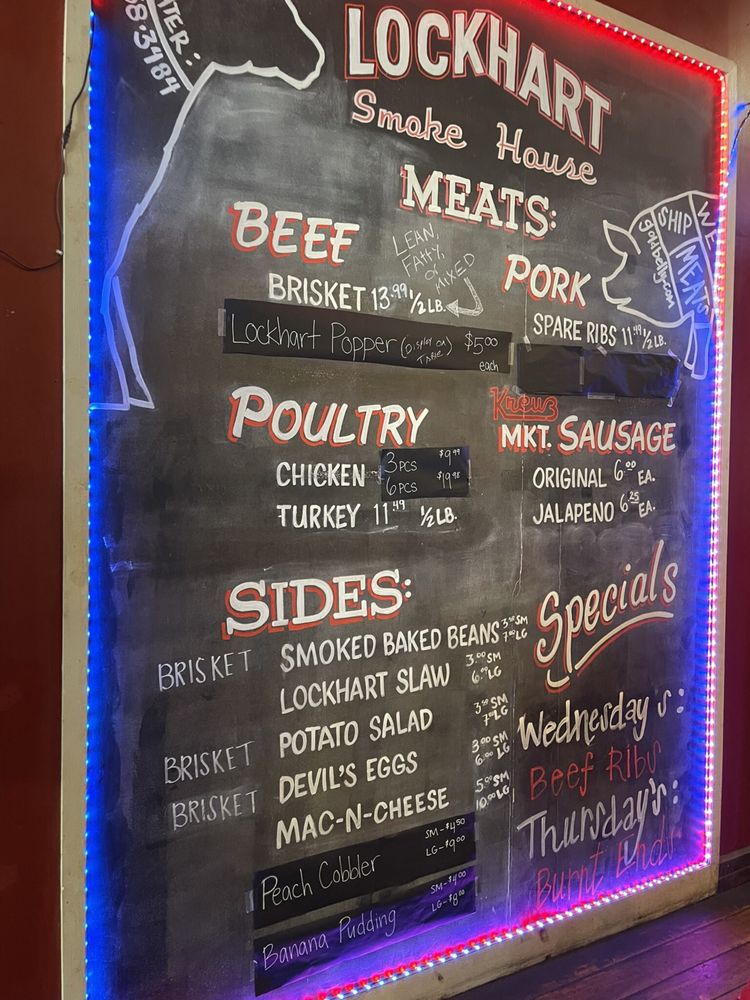 LOCKHART
Smoke House
MEATS:
BEEF
LEAN,
FATTY,
or
MIXED
BRISKET 13.99 1/2 LB.
Lockhart Popper (Display on Table) $5.00 each
PORK
SPARE RIBS 11.49 1/2 LB.
WE
SHIP
MEATS
goldbelly.com
POULTRY
CHICKEN 3 PCS $9.99
6 PCS $19.98
TURKEY 11.49 1/2 LB.
Kreuz
MKT. SAUSAGE
ORIGINAL 6.00 EA.
JALAPENO 6.25 EA.
SIDES:
BRISKET SMOKED BAKED BEANS 3.50 SM 7.00 LG
LOCKHART SLAW 3.00 SM 6.00 LG
POTATO SALAD 3.50 SM 7.00 LG
BRISKET DEVIL'S EGGS 3.00 SM 6.00 LG
BRISKET MAC-N-CHEESE 5.00 SM 10.00 LG
Peach Cobbler SM-$4.50 LG-$9.00
Banana Pudding SM-$4.00 LG-$8.00
Specials
Wednesday's:
Beef Ribs
Thursday's:
Burnt Ends